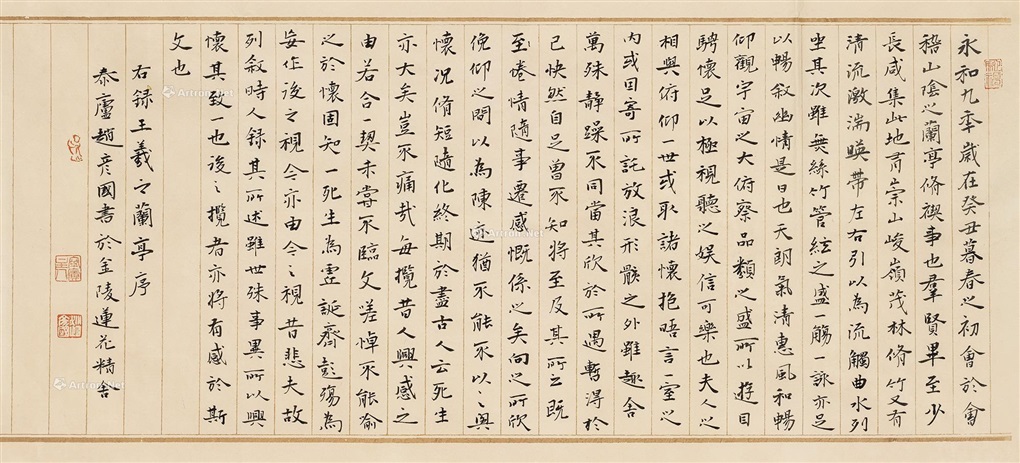 永和九年歲在癸丑暮春之初會於會
稽山陰之蘭亭脩禊事也羣賢畢至少
長咸集此地有崇山峻嶺茂林脩竹又有
清流激湍暎帶左右引以為流觴曲水列
坐其次雖無絲竹管絃之盛一觴一詠亦足
以暢敘幽情是日也天朗氣清惠風和暢
仰觀宇宙之大俯察品類之盛所以遊目
騁懷足以極視聽之娛信可樂也夫人之
相與俯仰一世或取諸懷抱晤言一室之
內或因寄所託放浪形骸之外雖趣舍
萬殊靜躁不同當其欣於所遇暫得於
己快然自足曾不知將至及其所之既
至惓情隨事遷感慨係之矣向之所欣
俛仰之間以為陳迹猶不能不以之興
懷況脩短隨化終期於盡古人云死生
亦大矣豈不痛哉每攬昔人興感之
由若合一契未嘗不臨文嗟悼不能喻
之於懷固知一死生為虛誕齊彭殤為
妄作後之視今亦由今之視昔悲夫故
列敘時人錄其所述雖世殊事異所以興
懷其致一也後之攬者亦將有感於斯
文也
右錄王羲之蘭亭序
泰廬趙彥國書於金陵蓮花精舍
Artron.Net